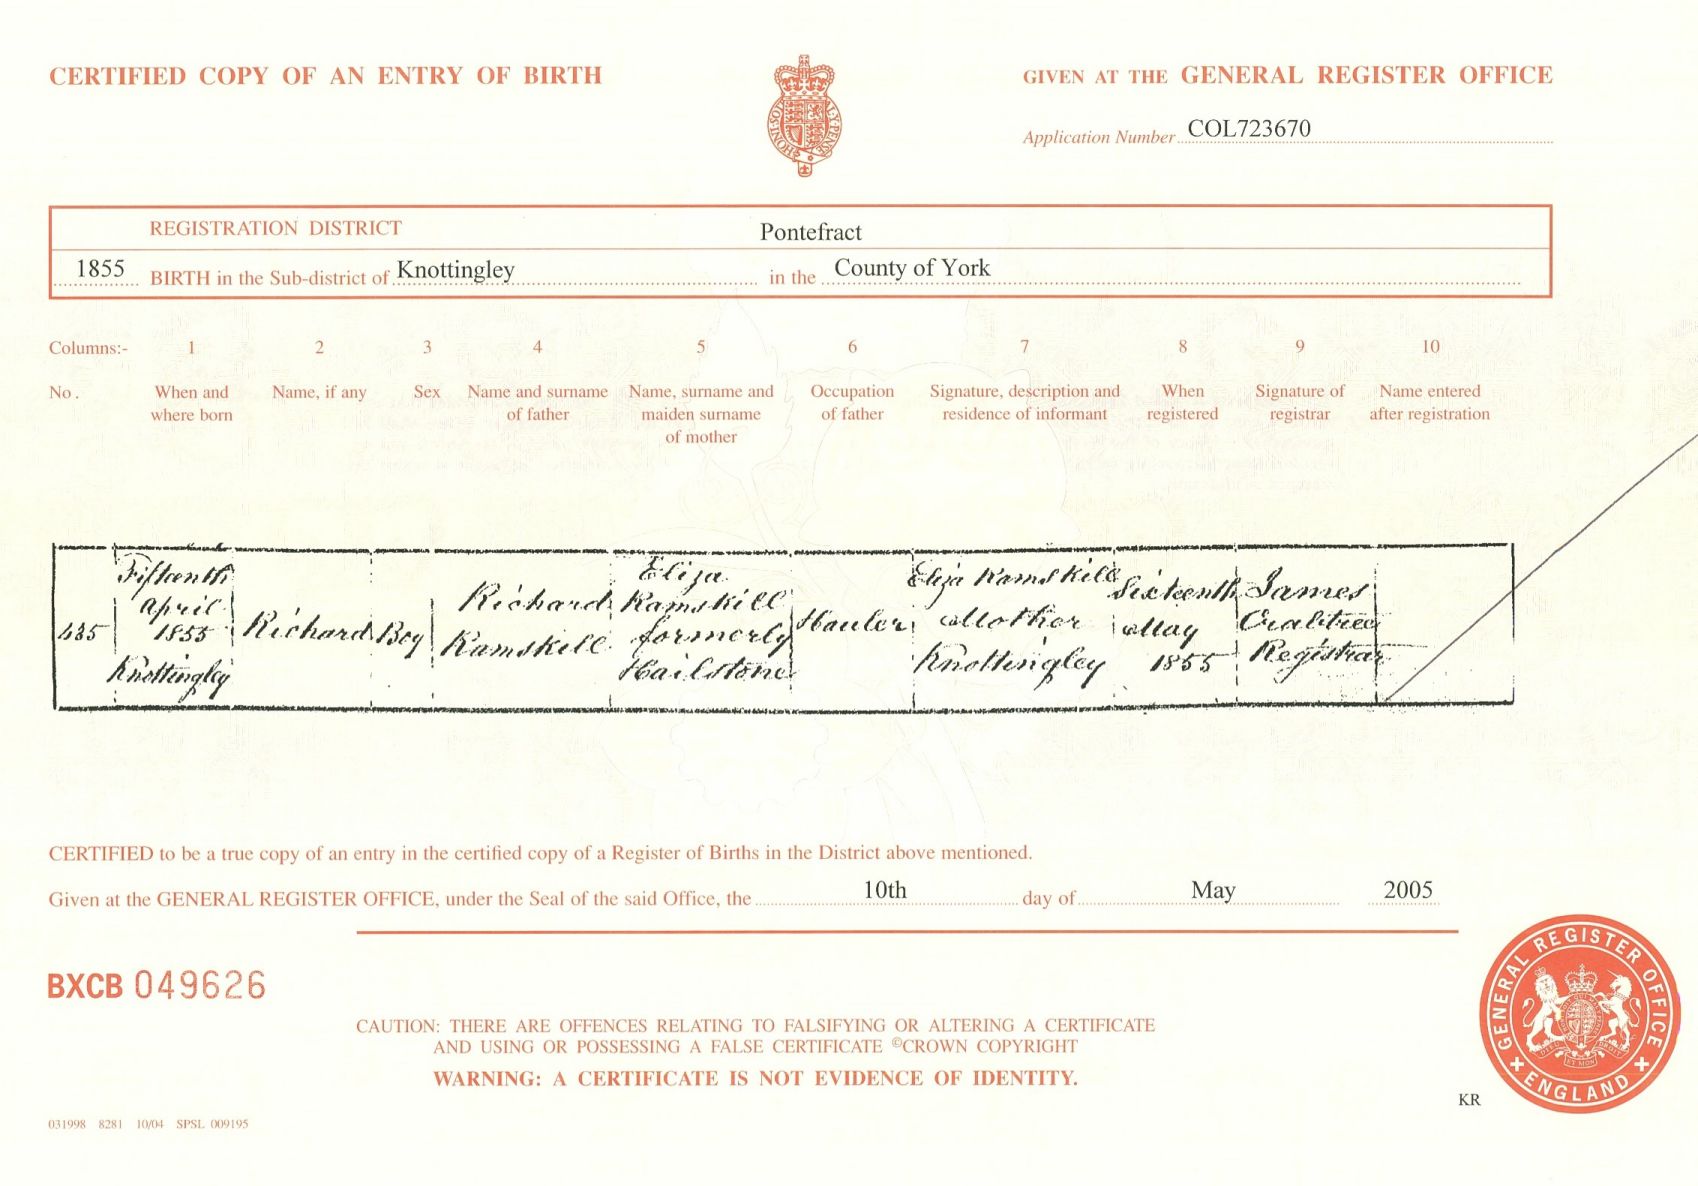 CERTIFIED COPY OF AN ENTRY OF BIRTH
GIVEN AT THE GENERAL REGISTER OFFICE
Application Number COL723670
REGISTRATION DISTRICT Pontefract
1855 BIRTH in the Sub-district of Knottingley in the County of York
Columns:- 1 2 3 4 5 6 7 8 9 10
No. When and where born
Name, if any
Sex
Name and surname of father
Name, surname and maiden surname of mother
Occupation of father
Signature, description and residence of informant
When registered
Signature of registrar
Name entered after registration
435
Fifteenth
April
1855
Knottingley
Richard
Boy
Richard
Ramskill
Eliza
Ramskill
formerly
Hailstone
Hauler
Eliza Ramskill
Mother
Knottingley
Sixteenth
May
1855
James
Crabtree
Registrar
CERTIFIED to be a true copy of an entry in the certified copy of a Register of Births in the District above mentioned.
Given at the GENERAL REGISTER OFFICE, under the Seal of the said Office, the 10th day of May 2005
BXCB 049626
CAUTION: THERE ARE OFFENCES RELATING TO FALSIFYING OR ALTERING A CERTIFICATE
AND USING OR POSSESSING A FALSE CERTIFICATE ©CROWN COPYRIGHT
WARNING: A CERTIFICATE IS NOT EVIDENCE OF IDENTITY.
GENERAL REGISTER OFFICE
ENGLAND
KR
031998 8281 10/04 SPSL 009195